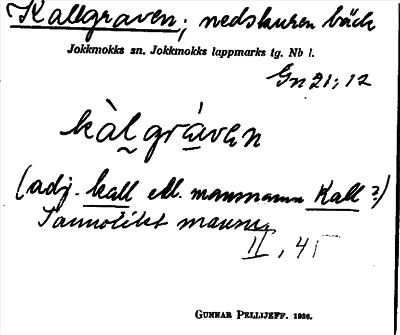 Kallgraven; nedskuren bäck
Jokkmokks sn. Jokkmokks lappmarks tg. Nb l.
Gn 21; 12
kàl gráven
(adj. kall ell. mansnamn Kall?)
Sannolikt mansn.
II, 45
GUNNAR PELLIJEFF. 1936.